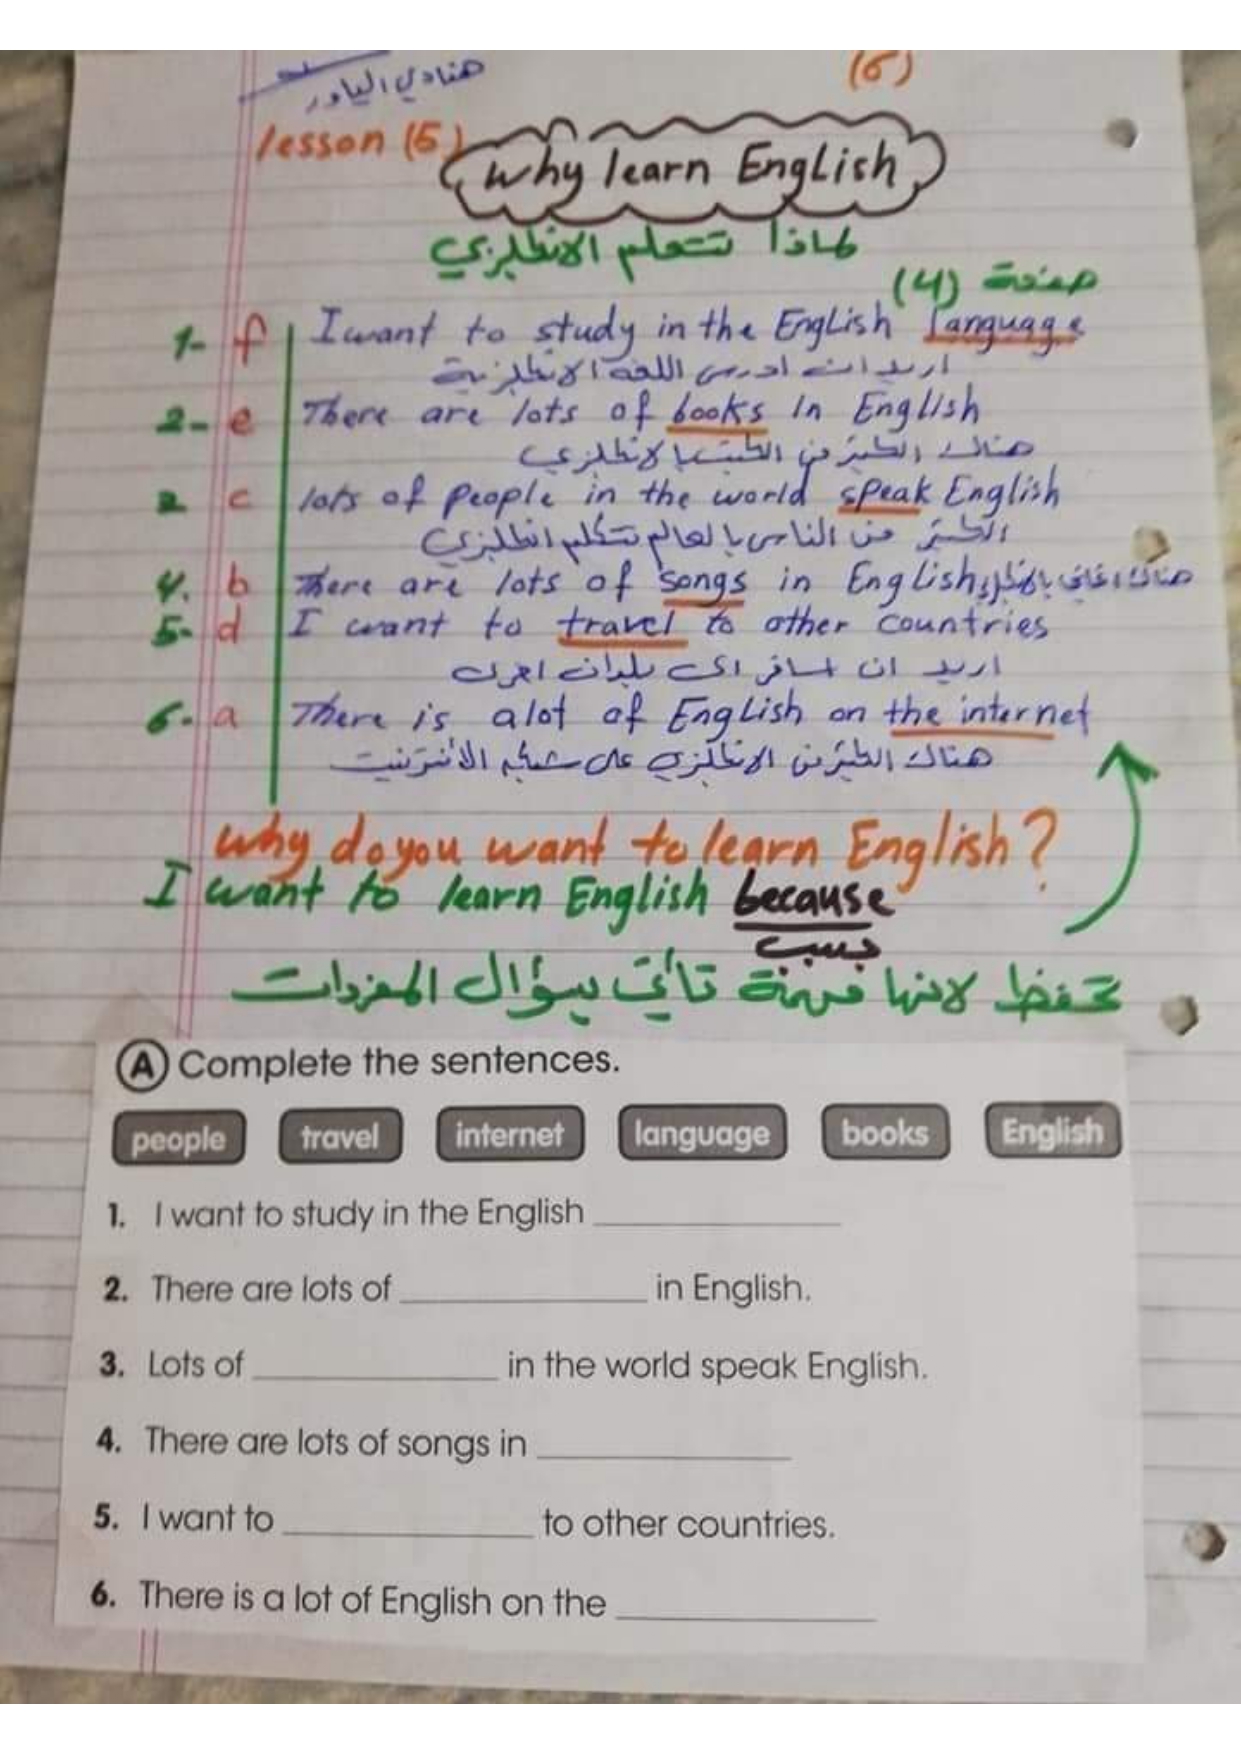 هنادي الياور
(6)
lesson (5)
Why learn English
لماذا نتعلم الانكليزي
صفحة (4)
1- f I want to study in the English language
اريد ان ادرس اللغة الانكليزية
2- e There are lots of books in English
هناك الكثير من الكتب بالانكليزي
2 c lots of people in the world speak English
الكثير من الناس بالعالم تتكلم انكليزي
4. b There are lots of songs in English هناك اغاني بالانكليزي
5- d I want to travel to other countries
اريد ان اسافر الى بلدان اخرى
6- a There is alot of English on the internet
هناك الكثير من الانكليزي على شبكة الأنترنيت
Why do you want to learn English?
I want to learn English because
بسبب
تحفظ لانها مهمة تأتي بسؤال المفردات
A Complete the sentences.
people travel internet language books English
1. I want to study in the English
2. There are lots of in English.
3. Lots of in the world speak English.
4. There are lots of songs in
5. I want to to other countries.
6. There is a lot of English on the